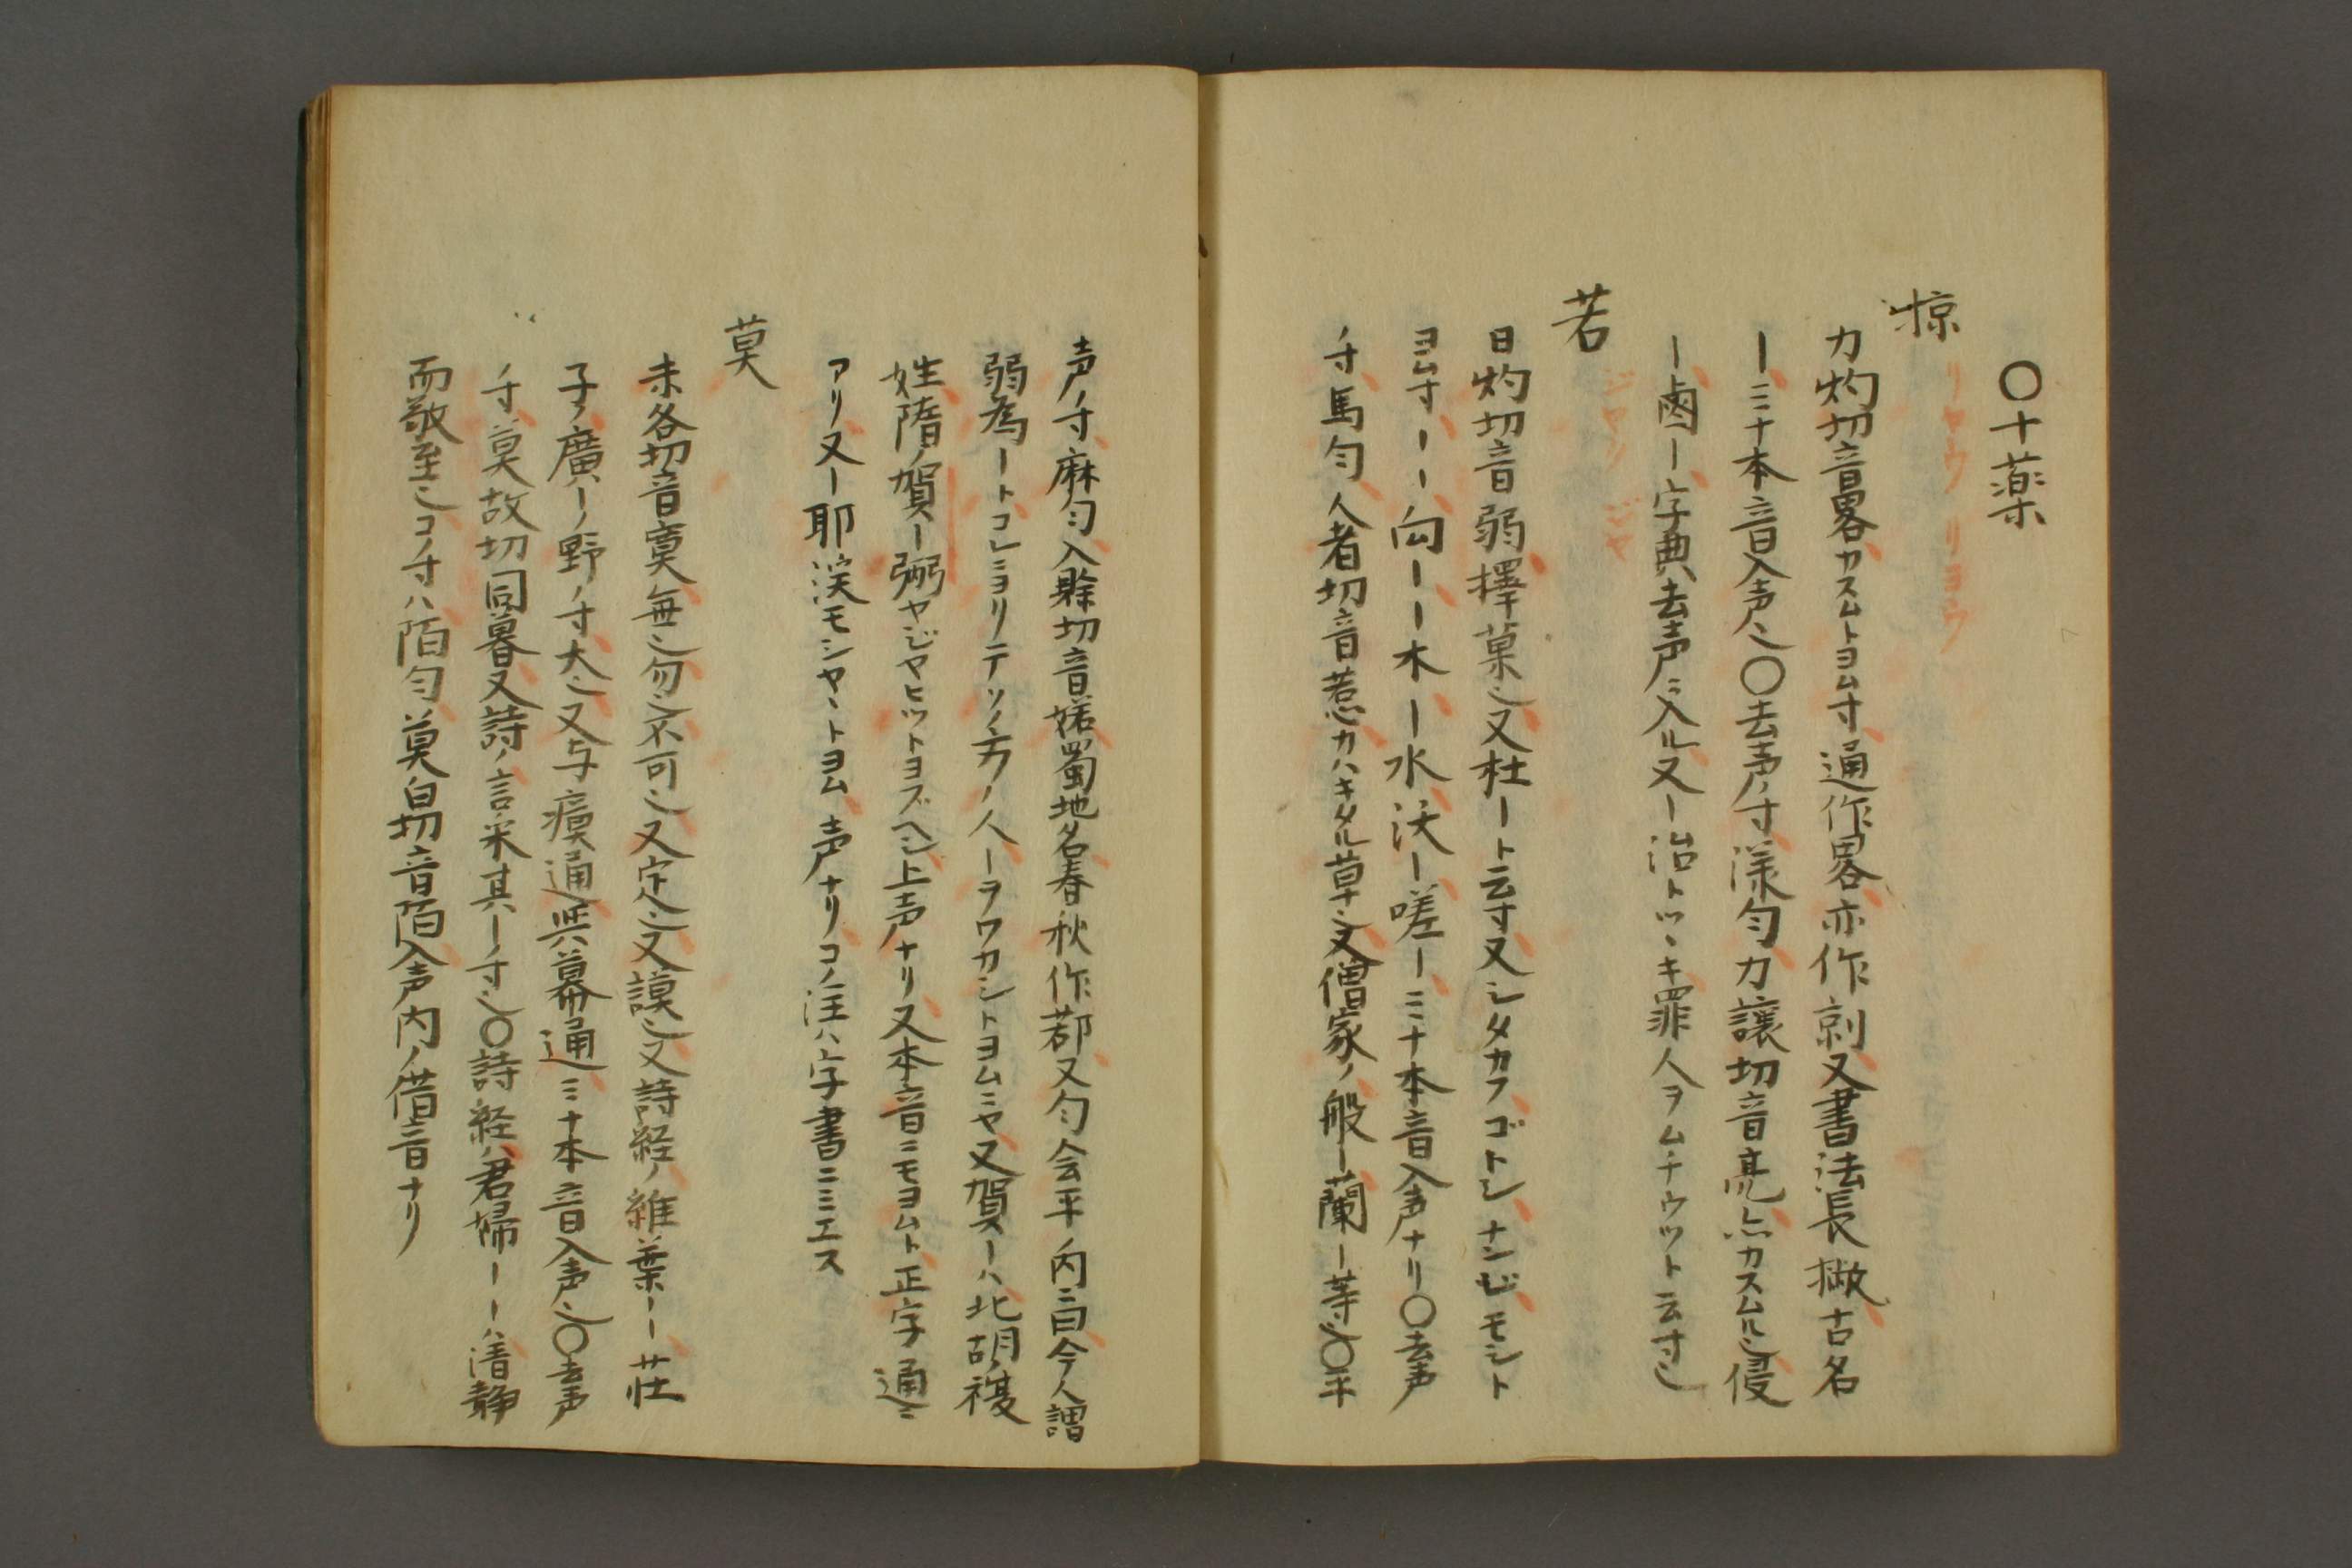 〇十薬
掠
リヤウ リヨウ
力灼切音畧カスムトヨム寸通作畧亦作剠又書法長撇古名
ー三十本音入声也〇去声ノ寸漾匀力讓切音亮亦カスムル也侵
ー鹵ー字典ハ去声ニ入ル又ー治トツヽキ罪人ヲムチウツト云寸也
若
ジヤク ジヤ
日灼切音弱擇菜也又杜ート云寸又シタカフゴトシナンヂモシト
ヨム寸ーー向ーー木ー水沃ー嗟ー三十本音入声ナリ〇去声
ノ寸馬匀人者切音惹カハキタル草也又僧家ノ般ー蘭ー等也〇平
声ノ寸麻匀入賒切音婼蜀地名春秋作鄀又匀会平ノ内ニ曰今人謂
弱為ートコレニヨリテソノ方ノ人ーヲワカシトヨムニヤ又賀ーハ北胡ノ複
姓隋ノ賀ー弼ヤジヤヒツトヨブヘシ上声ナリ又本音ニモヨムト正字通ニ
アリ又ー耶渓モシヤヽトヨム声ナリコノ注ハ字書ニミエス
莫
末各切音寞無也勿也不可也又定也又謨也又詩経ノ維葉ーー荘
子ノ廣ーノ野ノ寸大也又与瘼通与幕通三十本音入声也〇去声
ノ寸莫故切同暮又詩ノ言采其ーノ寸也〇詩経ハ君婦ーーハ清静
而敬至也コノ寸ハ陌匀莫白切音陌入声内ノ借音ナリ